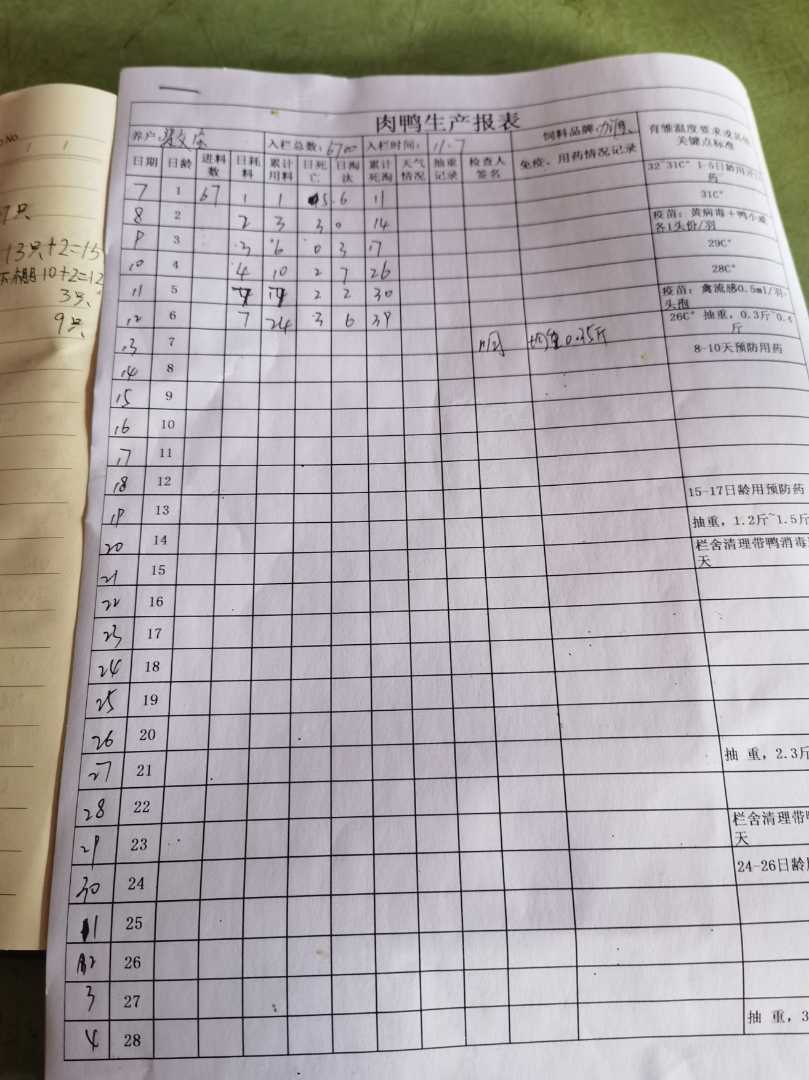 No.
7只
13只+2=15
10+2=12
3只
9只
肉鸭生产报表
养户: 入栏总数: 6700 入栏时间: 11.7 饲料品牌: 育雏温度要求及其他关键点标准
日期 日龄 进料数 日耗料 累计用料 日死亡 日淘汰 累计死淘 天气情况 抽重记录 检查人签名 免疫、用药情况记录
7 1 67 1 1 5 6 11 32~31C° 1-5日龄用开口药
8 2 2 3 3 0 14 31C°
9 3 3 6 0 3 17 疫苗：黄病毒+鸭小减各1头份/羽
10 4 4 10 2 7 26 29C°
11 5 2 2 30 28C°
12 6 7 24 3 6 39 疫苗：禽流感0.5ml/羽·头孢
13 7 均重0.35斤 26C° 抽重，0.3斤~0.4斤
14 8 8-10天预防用药
15 9
16 10
17 11
18 12
19 13 15-17日龄用预防药
20 14 抽重，1.2斤~1.5斤
21 15 栏舍清理带鸭消毒 天
22 16
23 17
24 18
25 19
26 20
27 21 抽 重，2.3斤
28 22
29 23 栏舍清理带 天
30 24 24-26日龄
1 25
2 26
3 27
4 28 抽 重，3